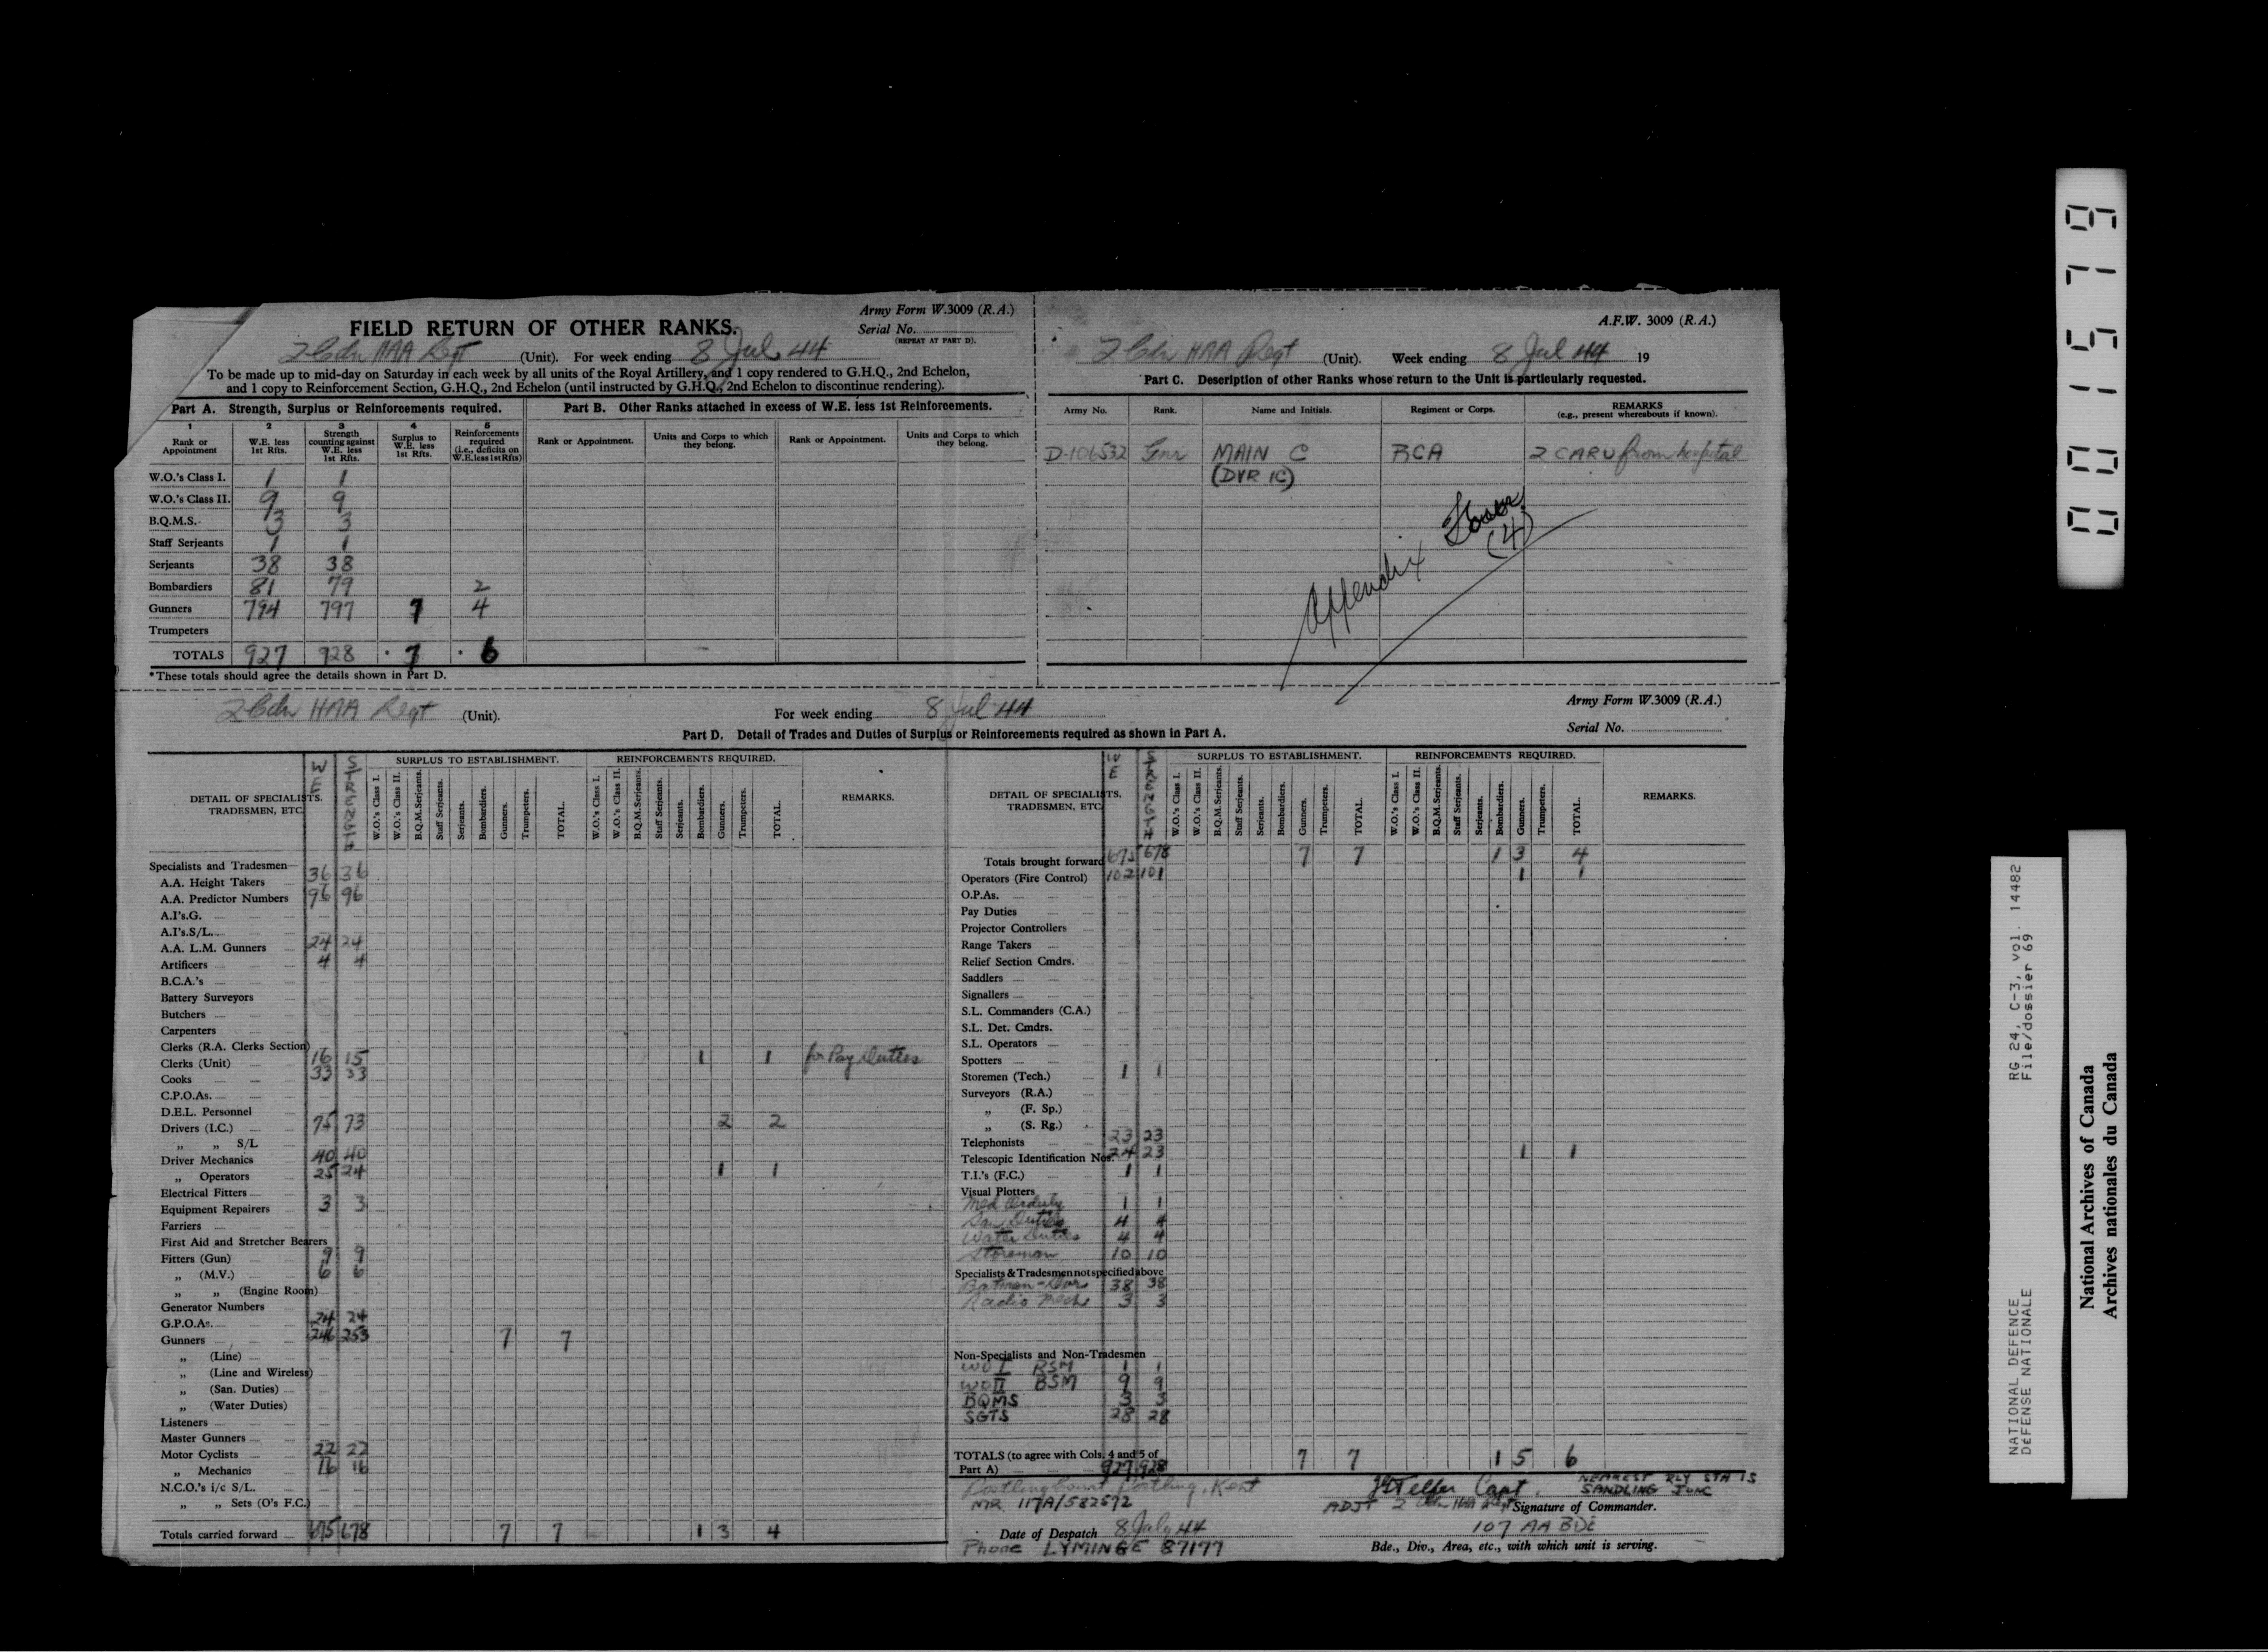 Army Form W.3009 (R.A.)
FIELD RETURN OF OTHER RANKS.
Serial No.
(REPEAT AT PART D).
2 Cdn HAA Regt (Unit). For week ending 8 Jul 44
To be made up to mid-day on Saturday in each week by all units of the Royal Artillery, and 1 copy rendered to G.H.Q., 2nd Echelon,
and 1 copy to Reinforcement Section, G.H.Q., 2nd Echelon (until instructed by G.H.Q., 2nd Echelon to discontinue rendering).
Part A. Strength, Surplus or Reinforcements required.
1 2 3 4 5
Rank or Appointment
W.E. less 1st Rfts.
Strength counting against W.E. less 1st Rfts.
Surplus to W.E. less 1st Rfts.
Reinforcements required (i.e., deficits on W.E. less 1st Rfts)
W.O.'s Class I. 1 1
W.O.'s Class II. 9 9
B.Q.M.S. 3 3
Staff Serjeants 1 1
Serjeants 38 38
Bombardiers 81 79 2
Gunners 794 797 7 4
Trumpeters
TOTALS 927 928 * 7 * 6
*These totals should agree the details shown in Part D.
Part B. Other Ranks attached in excess of W.E. less 1st Reinforcements.
Rank or Appointment. Units and Corps to which they belong. Rank or Appointment. Units and Corps to which they belong.
A.F.W. 3009 (R.A.)
2 Cdn HAA Regt (Unit). Week ending 8 Jul 44 19
Part C. Description of other Ranks whose return to the Unit is particularly requested.
Army No. Rank. Name and Initials. Regiment or Corps. REMARKS
(e.g., present whereabouts if known).
D-106532 Gnr MAIN C RCA 2 CARU from hospital
(DVR IC)
Appendix Four
(4)
2 Cdn HAA Regt (Unit). For week ending 8 Jul 44
Army Form W.3009 (R.A.)
Serial No.
Part D. Detail of Trades and Duties of Surplus or Reinforcements required as shown in Part A.
DETAIL OF SPECIALISTS, TRADESMEN, ETC.
WE
STRENGTH
SURPLUS TO ESTABLISHMENT.
W.O.'s Class I. W.O.'s Class II. B.Q.M.Serjeants. Staff Serjeants. Serjeants. Bombardiers. Gunners. Trumpeters. TOTAL.
REINFORCEMENTS REQUIRED.
W.O.'s Class I. W.O.'s Class II. B.Q.M.Serjeants. Staff Serjeants. Serjeants. Bombardiers. Gunners. Trumpeters. TOTAL.
REMARKS.
Specialists and Tradesmen—
A.A. Height Takers 36 36
A.A. Predictor Numbers 96 96
A.I's.G.
A.I's.S/L.
A.A. L.M. Gunners 24 24
Artificers 4 4
B.C.A.'s
Battery Surveyors
Butchers
Carpenters
Clerks (R.A. Clerks Section)
Clerks (Unit) 16 15 1 1 for Pay Duties
Cooks 33 33
C.P.O.As.
D.E.L. Personnel
Drivers (I.C.) 75 73 2 2
„ „ S/L
Driver Mechanics 40 40
„ Operators 25 24 1 1
Electrical Fitters
Equipment Repairers 3 3
Farriers
First Aid and Stretcher Bearers
Fitters (Gun) 9 9
„ (M.V.) 6 6
„ „ (Engine Room)
Generator Numbers
G.P.O.As. 24 24
Gunners 246 253 7 7
„ (Line)
„ (Line and Wireless)
„ (San. Duties)
„ (Water Duties)
Listeners
Master Gunners
Motor Cyclists 22 22
„ Mechanics 16 16
N.C.O.'s i/c S/L.
„ „ Sets (O's F.C.)
Totals carried forward 675 678 7 7 1 3 4
DETAIL OF SPECIALISTS, TRADESMEN, ETC.
WE
STRENGTH
SURPLUS TO ESTABLISHMENT.
W.O.'s Class I. W.O.'s Class II. B.Q.M.Serjeants. Staff Serjeants. Serjeants. Bombardiers. Gunners. Trumpeters. TOTAL.
REINFORCEMENTS REQUIRED.
W.O.'s Class I. W.O.'s Class II. B.Q.M.Serjeants. Staff Serjeants. Serjeants. Bombardiers. Gunners. Trumpeters. TOTAL.
REMARKS.
Totals brought forward 675 678 7 7 1 3 4
Operators (Fire Control) 102 101 1 1
O.P.As.
Pay Duties
Projector Controllers
Range Takers
Relief Section Cmdrs.
Saddlers
Signallers
S.L. Commanders (C.A.)
S.L. Det. Cmdrs.
S.L. Operators
Spotters
Storemen (Tech.) 1 1
Surveyors (R.A.)
„ (F. Sp.)
„ (S. Rg.)
Telephonists 23 23
Telescopic Identification Nos. 24 23 1 1
T.I.'s (F.C.) 1 1
Visual Plotters
Med Orderly 1 1
San Duties 4 4
Water Duties 4 4
Storeman 10 10
Specialists & Tradesmen not specified above
Batman-Dvr 38 38
Radio Mech 3 3
Non-Specialists and Non-Tradesmen
WO I RSM 1 1
WO II BSM 9 9
BQMS 3 3
SGTS 28 28
TOTALS (to agree with Cols. 4 and 5 of
Part A) 927 928 7 7 1 5 6
Postling Court, Postling, Kent
MR 117A/582592
Date of Despatch 8 July 44
Phone LYMINGE 87177
Telfer Capt.
NEAREST RLY STA IS
SANDLING JUNC
ADJT 2 Cdn HAA Regt Signature of Commander.
107 AA BDE
Bde., Div., Area, etc., with which unit is serving.
001579
NATIONAL DEFENCE RG 24, C-3, vol. 14482
DÉFENSE NATIONALE File/dossier 69
National Archives of Canada
Archives nationales du Canada